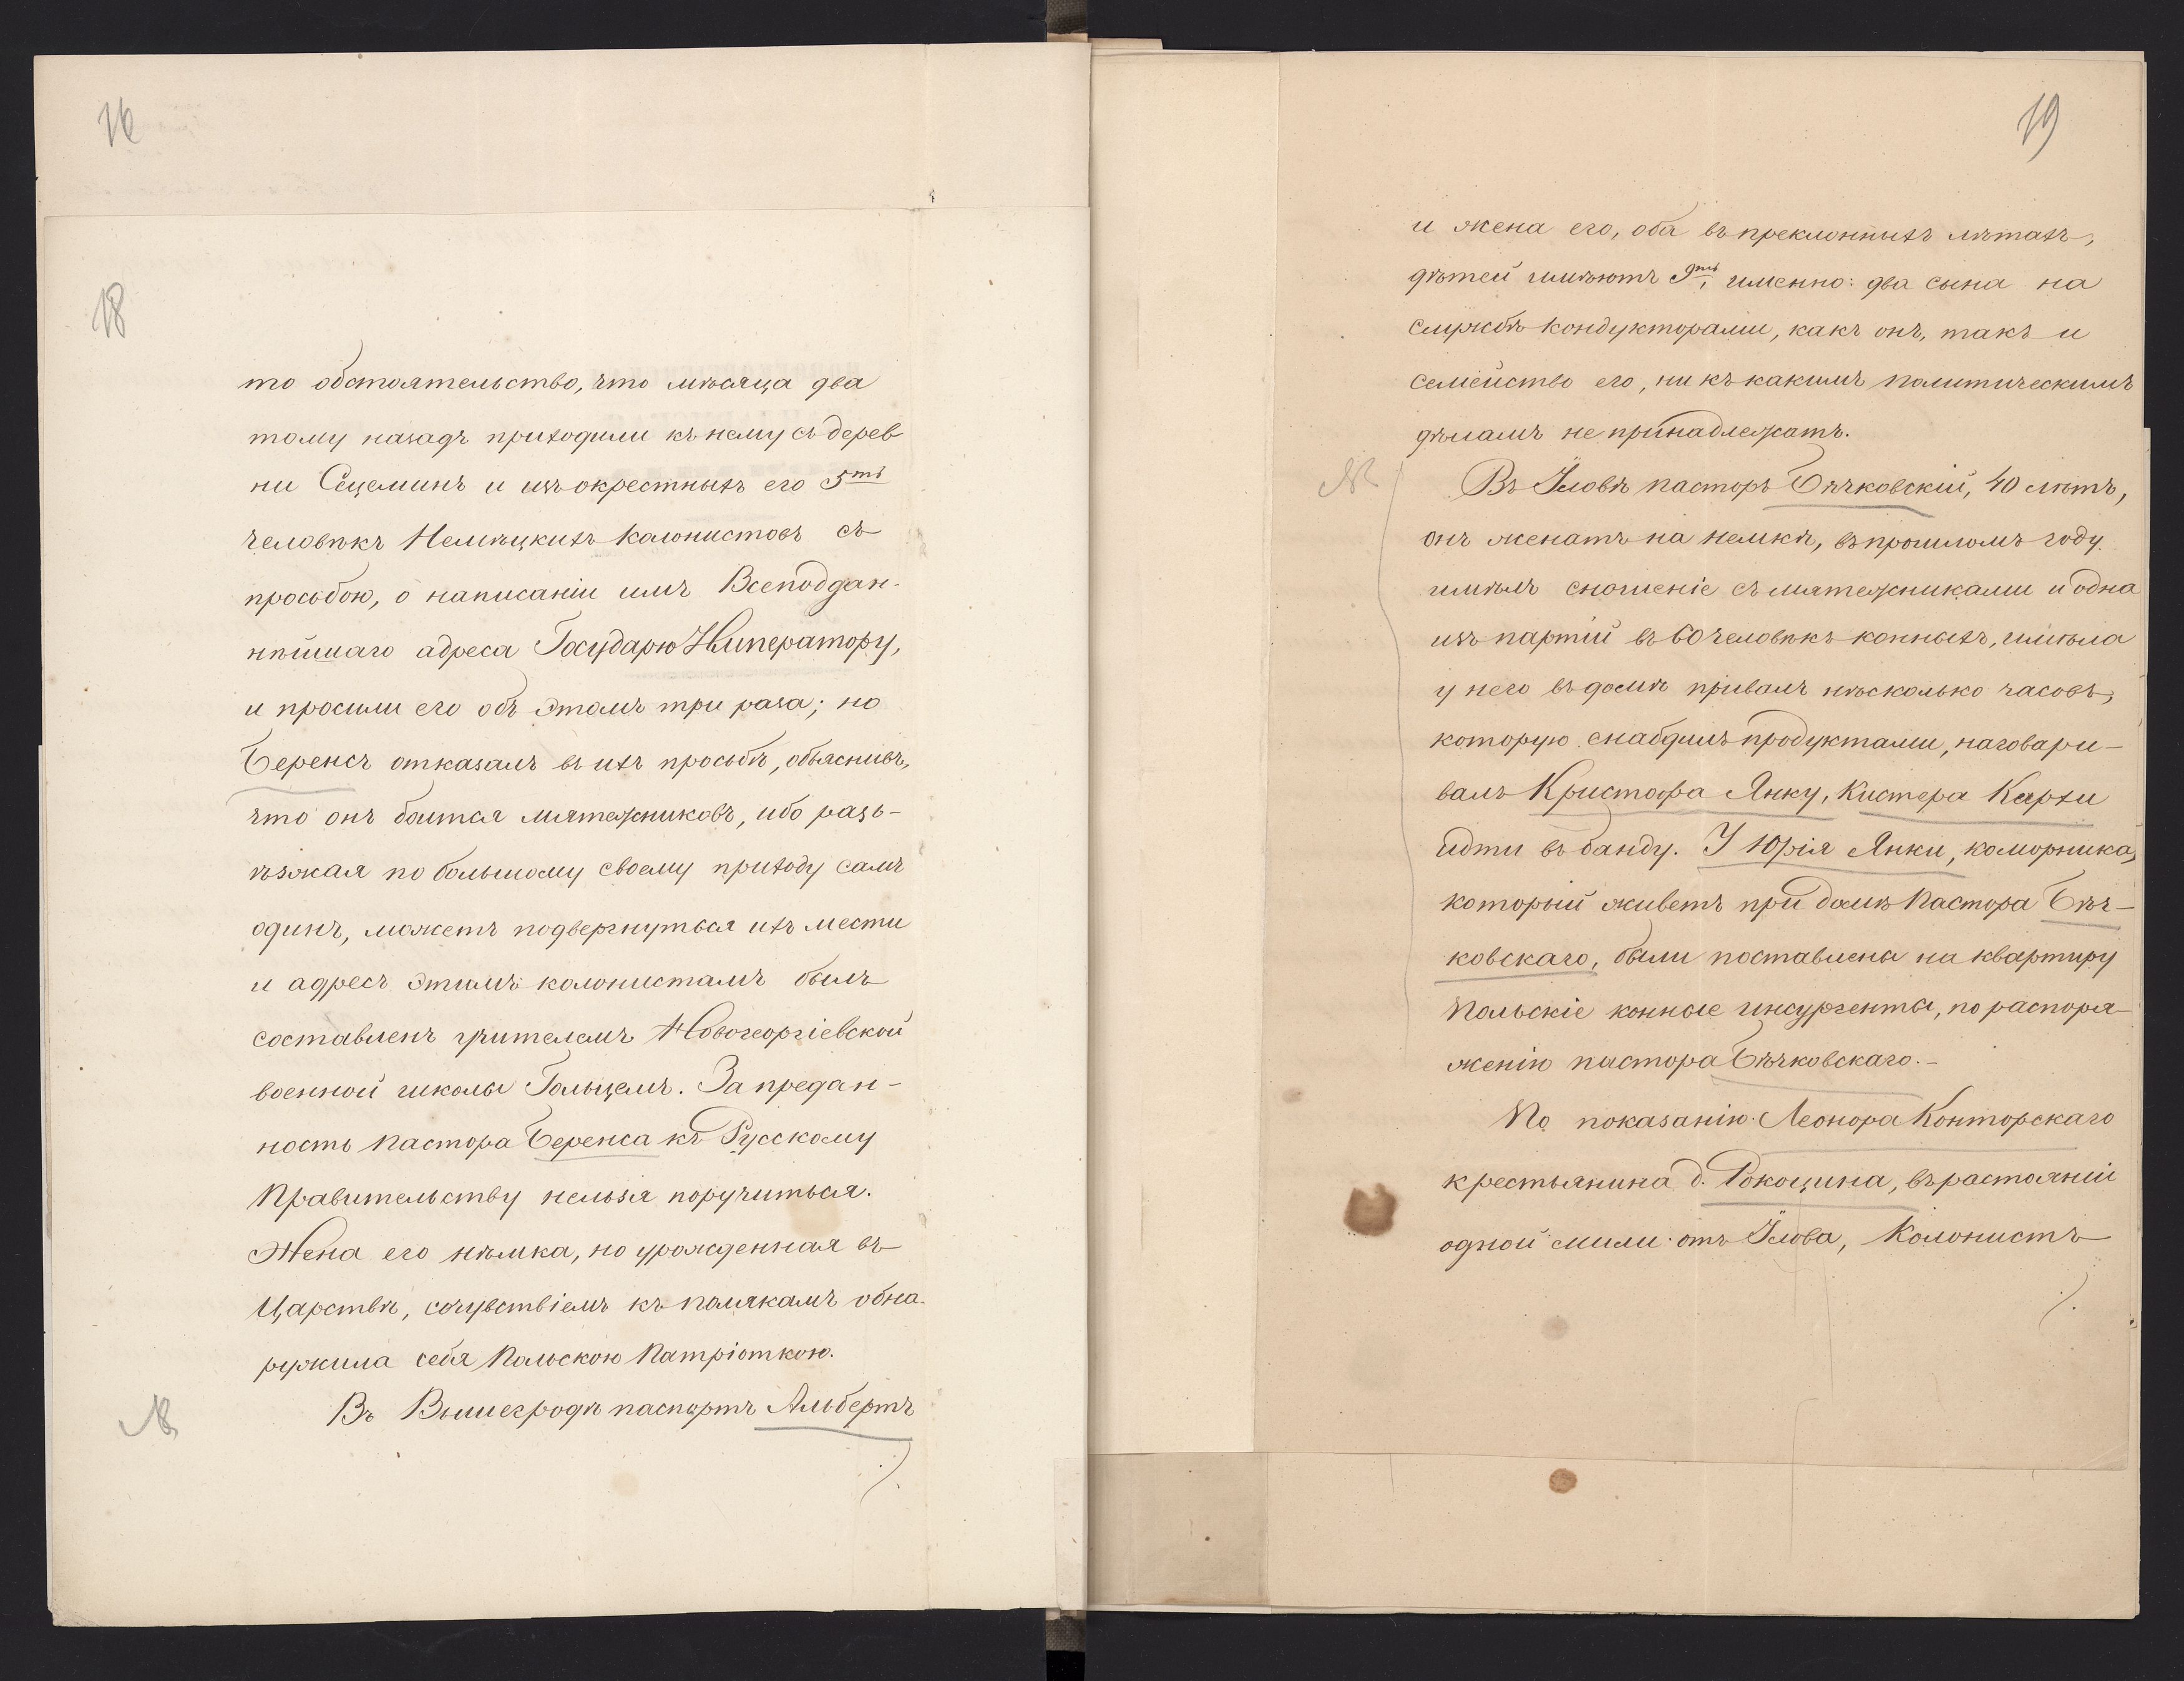 16
18
то обстоятельство, что мѣсяца два
тому назадъ приходили къ нему съ дерев
ни Сецеминъ и изъ окрестныхъ его 5ть
человѣкъ Немѣцкихъ колонистовъ съ
просьбою, о написаніи имъ Всеподдан-
нѣйшаго адреса Государю Императору,
и просили его объ этомъ три раза; но
Беренсъ отказалъ въ ихъ просьбѣ, объяснивъ,
что онъ боится мятежниковъ, ибо разъ-
ѣзжая по большому своему приходу самъ
одинъ, можетъ подвергнуться ихъ мести
и адресъ этимъ колонистамъ былъ
составленъ учителемъ Новогеоргіевской
военной школы Гольцемъ. За предан-
ность пастора Беренса къ Русскому
Правительству нельзя поручиться.
Жена его нѣмка, но урожденная въ
Царствѣ, сочувствіемъ къ полякамъ обна-
ружила себя Польскою Патріоткою.
NB
Въ Вышегродѣ паспортъ Альбертъ
./.
19
и жена его, оба въ преклонныхъ лѣтахъ,
дѣтей имѣютъ 9ть, именно: два сына на
службѣ кондукторами, какъ онъ, такъ и
семейство его, ни къ какимъ политическимъ
дѣламъ не принадлежатъ.
NB
Въ Иловѣ пасторъ Бѣчковскій, 40 лѣтъ,
онъ женатъ на немкѣ, въ прошломъ году
имѣлъ сношеніе съ мятежниками и одна
изъ партій въ 60 человѣкъ конныхъ, имѣла
у него въ домѣ привалъ нѣсколько часовъ,
которую снабдилъ продуктами, наговари-
валъ Кристофа Янку, Кистера Кархи
идти въ банду. У Юрія Янки, коморника,
который живетъ при домѣ Пастора Бѣч-
ковскаго, были поставлены на квартиру
Польскіе конные инсургенты, по распоря-
женію пастора Бѣчковскаго.-
По показанію Леонора Конторскаго
крестьянина д. Рокоцина, въ растояніи
одной мили отъ Илова, Колонистъ
./.